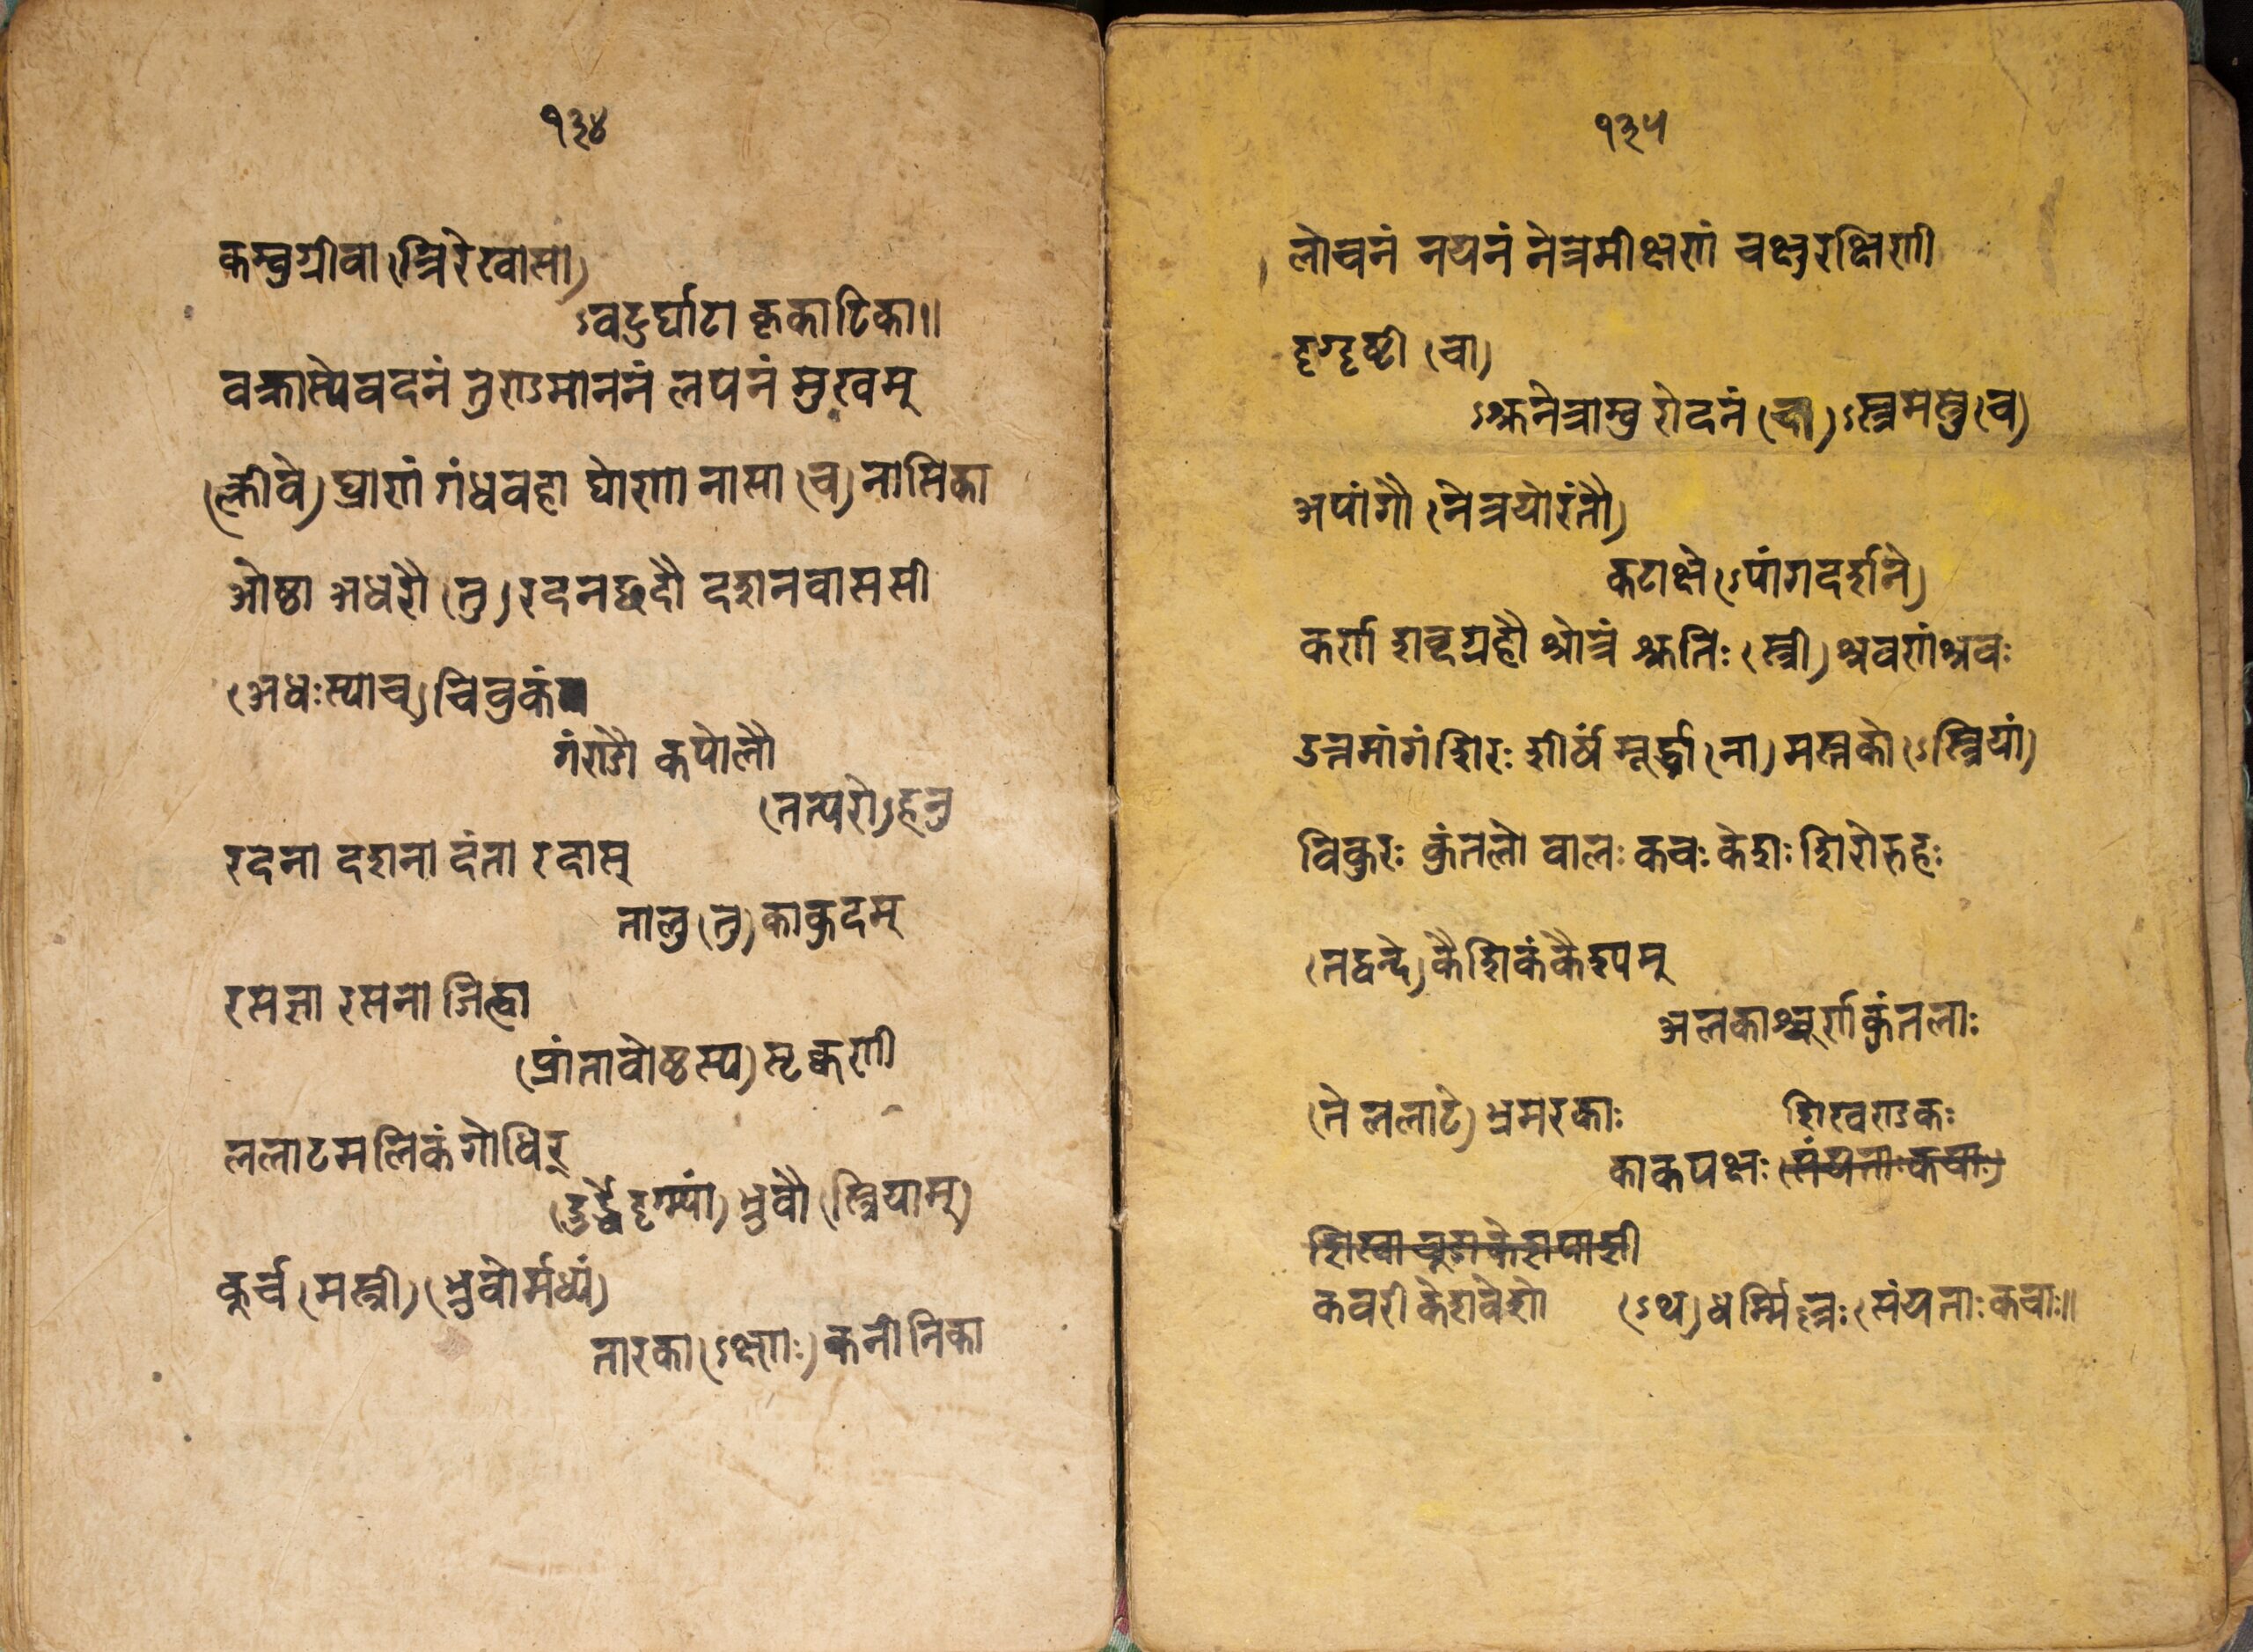 १३४
कम्बुग्रीवा (त्रिरेखासा)
ऽवटुर्घाटा कृकाटिका॥
वक्त्रास्ये वदनं तुण्डमाननं लपनं मुखम्
(क्लीवे) घ्राणं गंधवहा घोणा नासा (च) नासिका
ओष्ठा अधरौ (तु) रदनछदौ दशनवाससी
(अधःस्याच्) चिवुकं
गंण्डौ कपोलौ
(तत्परो) हनु
रदना दशना दंता रदास्
तालु (तु) काकुदम्
रसज्ञा रसना जिह्वा
(प्रांतावोष्ठस्य) सृक्कणी
ललाटमलिकं गोधिर्
(दुर्द्ध्वेदृग्भ्यां) भ्रुवौ (स्त्रियाम्)
कूर्च (मस्त्री) (भ्रुवोर्मध्यं)
तारका (ऽक्ष्णाः) कनीनिका
१३५
लोचनं नयनं नेत्रमीक्षणं चक्षुरक्षिणी
दृग्दृष्टी (चा)
ऽश्रुनेत्राम्बु रोदनं (चा) ऽस्त्रमस्रु (च)
अपांगौ (नेत्रयोरंतौ)
कटाक्षे (ऽपांगदर्शने)
कर्ण शब्दग्रहौ श्रोत्रं श्रुतिः (स्त्री) श्रवणंश्रवः
उत्तमांगंशिरः शीर्षं मूर्द्धा (ना) मस्तको (ऽस्त्रियां)
चिकुरः कुंतलो वालः कचः केशः शिरोरुहः
(तद्वृन्दे) कैशिकं कैश्यम्
अलकाश्चूर्णकुंतलाः
(ते ललाटे) भ्रमरकाः शिखण्डकः
काकपक्षः (संयताः कचाः)
शिखा चूडा केशपाशी
कवरी केशवेशो (ऽथ) धर्म्मिल्लः (संयताः कचाः॥